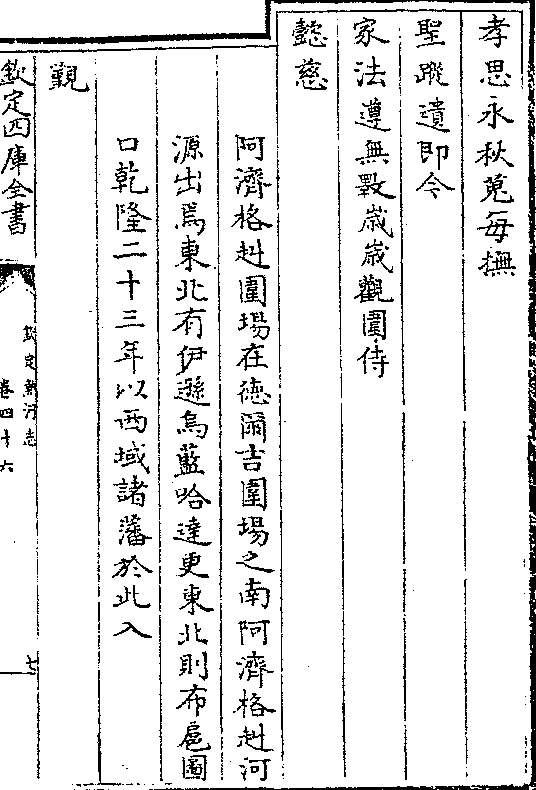 孝思永秋蒐每撫
聖蹤遺即今
家法遵無斁歲歲觀圍侍
懿慈
阿濟格赳圍場在德爾吉圍場之南阿濟格赳河
源出焉東北有伊遜烏藍哈達更東北則布扈圖
口乾隆二十三年以西域諸藩於此入
覲
欽定四庫全書
欽定熱河志
卷四十六
七